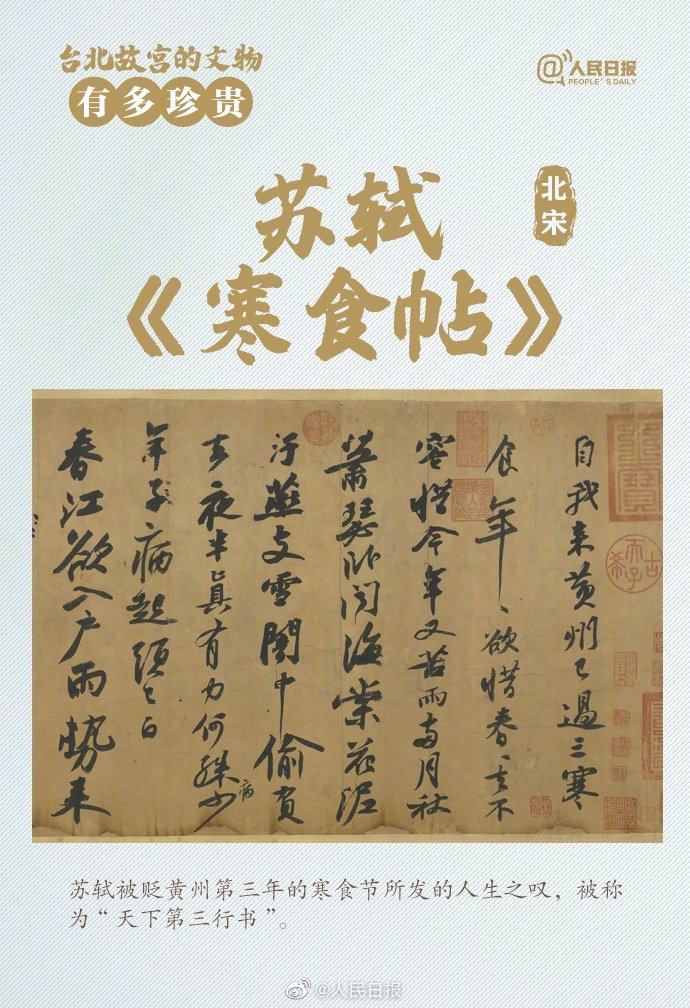 台北故宫的文物
有多珍贵
@人民日报
PEOPLE'S DAILY
苏轼
北宋
《寒食帖》
自我来黄州已過三寒
食年、欲惜春、去不
容惜今年又苦雨两月秋
蕭瑟卧聞海棠花泥
汙燕支雪闇中偷負
去夜半真有力何殊少
病
年子病起須已白
春江欲入户雨勢来
古希天子
苏轼被贬黄州第三年的寒食节所发的人生之叹，被称
为“天下第三行书”。
@人民日报